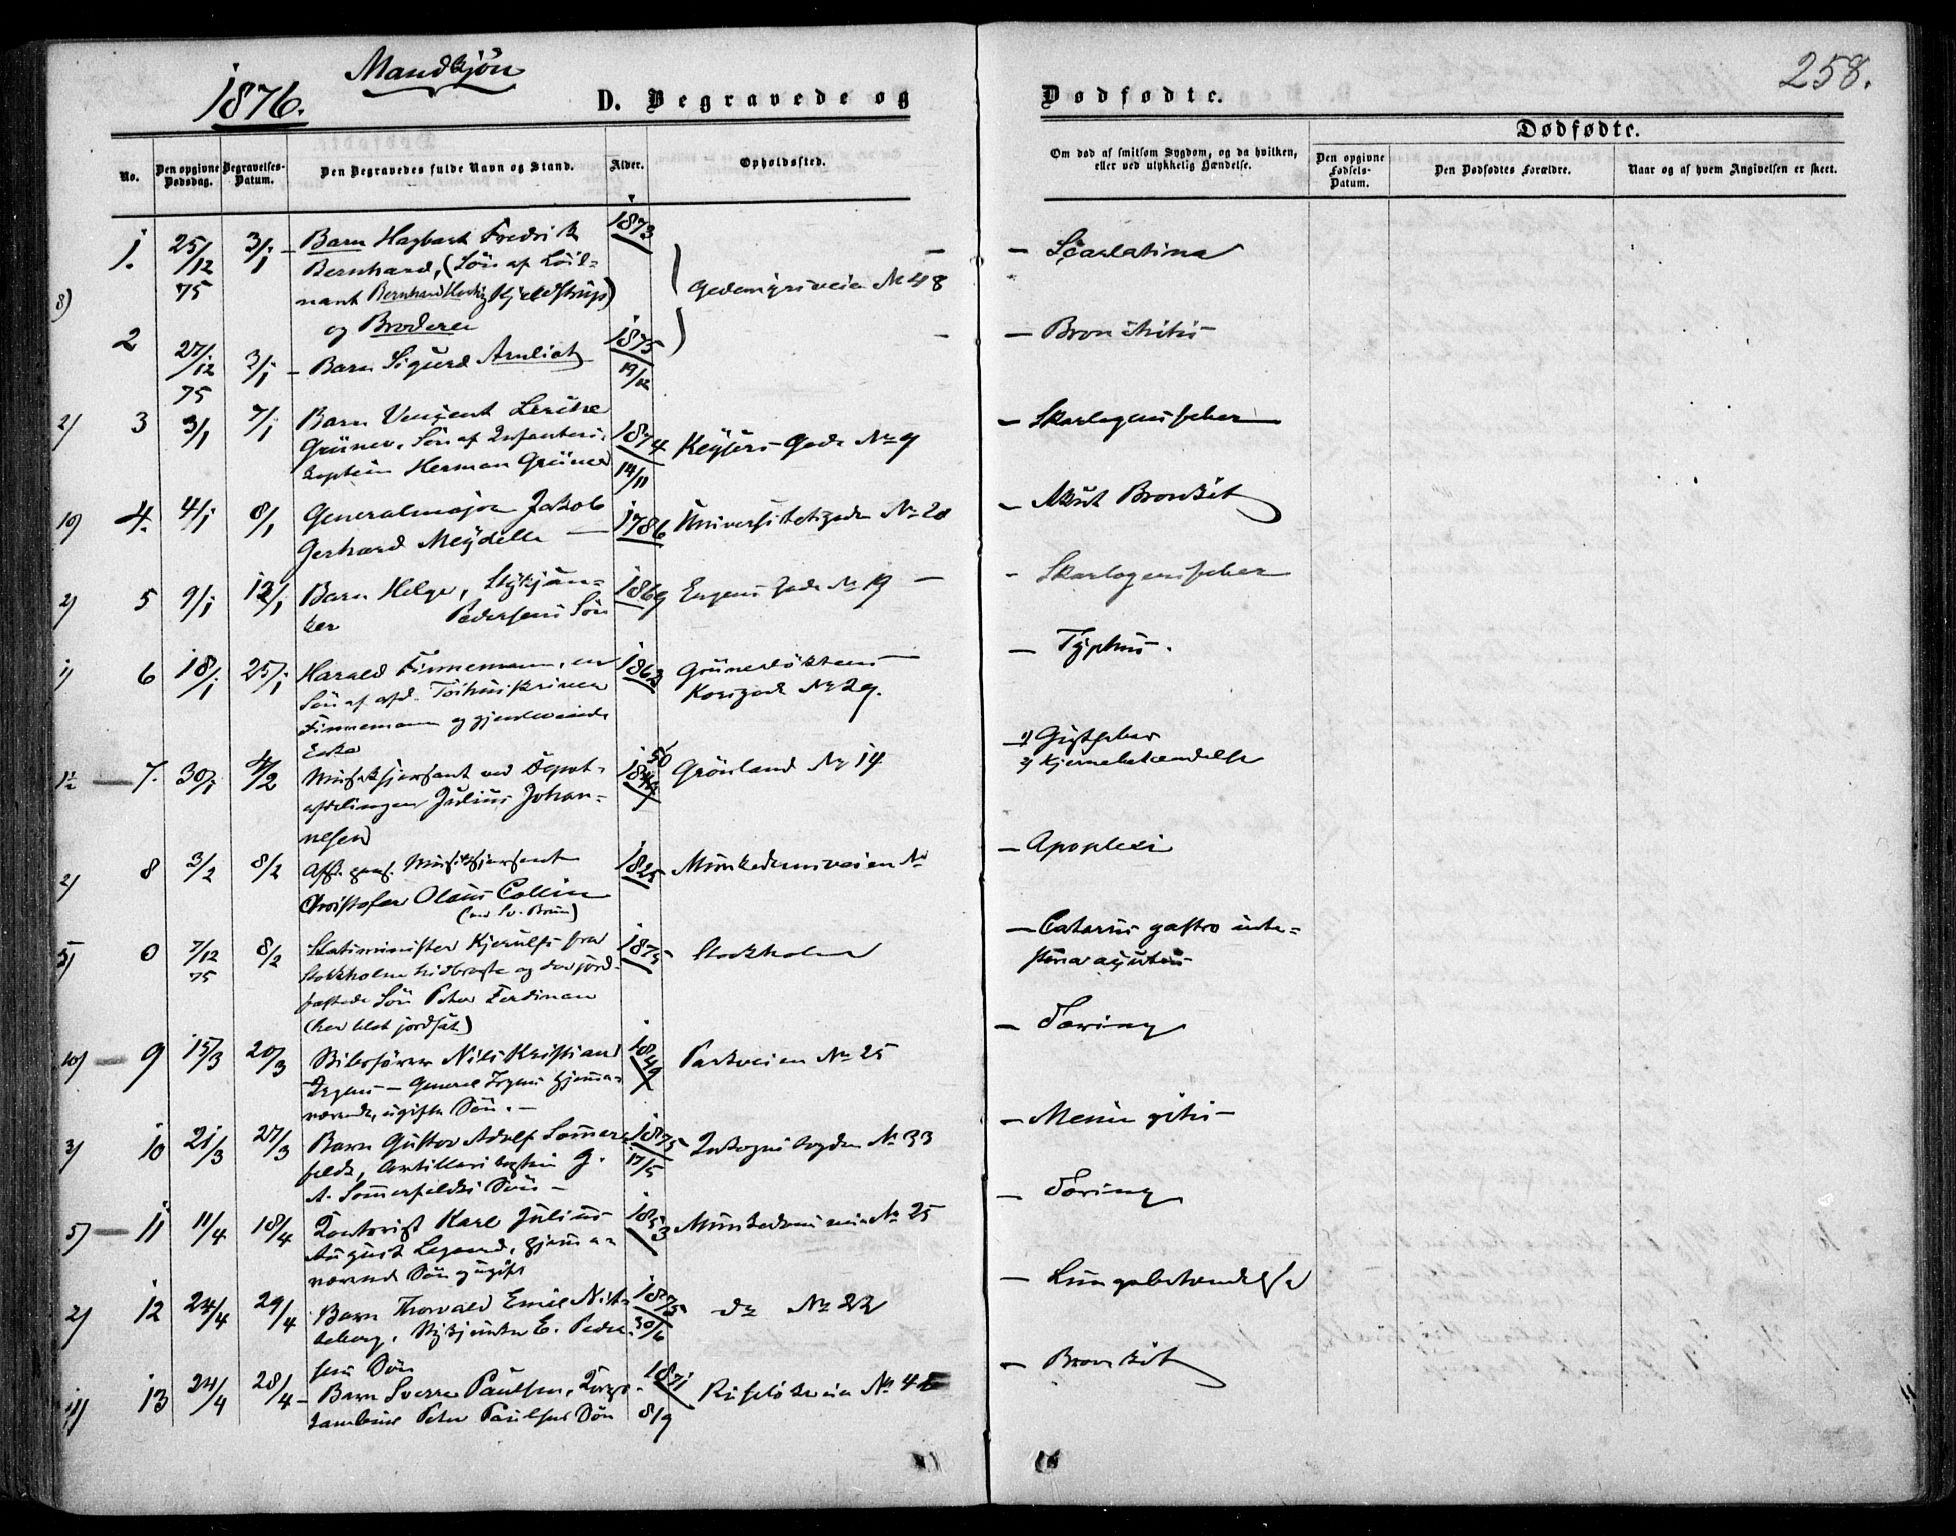 Mandkjøn
1876.
258.
D. Begravede og
Dødfødte.
Dødfødte.
No.
Den opgivne Dødsdag.
Begravelses-Datum.
Den Begravedes fulde Navn og Stand.
Alder.
Opholdssted.
Om død af smitsom Sygdom, og da hvilken,
eller ved ulykkelig Hændelse.
Den opgivne Fødsels-Datum.
Den Dødfødtes Forældre.
Naar og af hvem Angivelsen er skeet.
8) 1. 25/12 75 3/1 – Barn Hagbart Fredrik 1873 – Scarlatina
Bernhard, (Søn af
nant Bernhard Kjeldstrup) No 48
og Broderen
2 27/12 75 3/1 – Barn Sigurd 1875 19/12 – Bronchitis
2) 3 3/1 7/1 Barn Vincent Lerche 1874 14/11 Keysers Gade No 9 – Skarlagensfeber
Grüner, Søn af Infanteri-
kaptein Herman Grüner
10) 4. 4/1 8/1 Generalmajor Jakob 1786 Universitetsgaden No 20 – Akut Bronkit
Gerhard Meydell
2) 5 9/1 12/1 Barn Helge, Stykjun- 1869 Eugens Gade No 19 – Skarlagensfeber
ker Pedersens Søn
1) 6 18/1 25/1 Harald Finnemann, en 1863 Grünerløkkens – Typhus.
Søn af afd. Tøihusskriver Korsgade No 29.
Finnemann og gjenlevende
Enke
7. 30/1 4/2 Musiksersjant ved Depot- 50 Grønland No 14 1) Gigtfeber
afdelingen Julius Johan- 2) Hjernebetændelse
nesen
2) 8 3/2 8/2 Musiksersjant 1825 Munkedamsveien No – Apoplexi
Christofer Olaus Collin
5) 0 7/12 75 8/2 Statsminister Kjerulfs fra 1875 Stockholm – Catarrus gastro inte-
Stokholm hidbragte og der jord- stina acutus
fæstede Søn Peter Ferdinan
(her blot jordsat)
10) 9 15/3 20/3 Nils Kristian 1849 Parkveien No 25 – Tæring
Irgens – General Irgens hjemme-
værende, ugifte Søn. –
3) 10 21/3 27/3 Barn Gustav Adolf Sommer- 1875 17/5 Inkognitogaden No 33 – Meningitis
feldt, Artillerikaptein G.
A. Sommerfeldts Søn –
5) 11 11/4 18/4 Kontorist Karl Julius 1853 Munkedamsveien No 25 – Tæring
August hjemme-
værende Søn ugift
2) 12 24/4 29/4 Barn Thorvald Emil 1875 30/6 do No 22 – Lungebetændelse
Stykjunker E. Peder-
sens Søn
11) 13 24/4 28/4 – Barn Sverre Paulsen, 1871 8/9 Ruseløkveien No – Bronkit
Peter Paulsens Søn